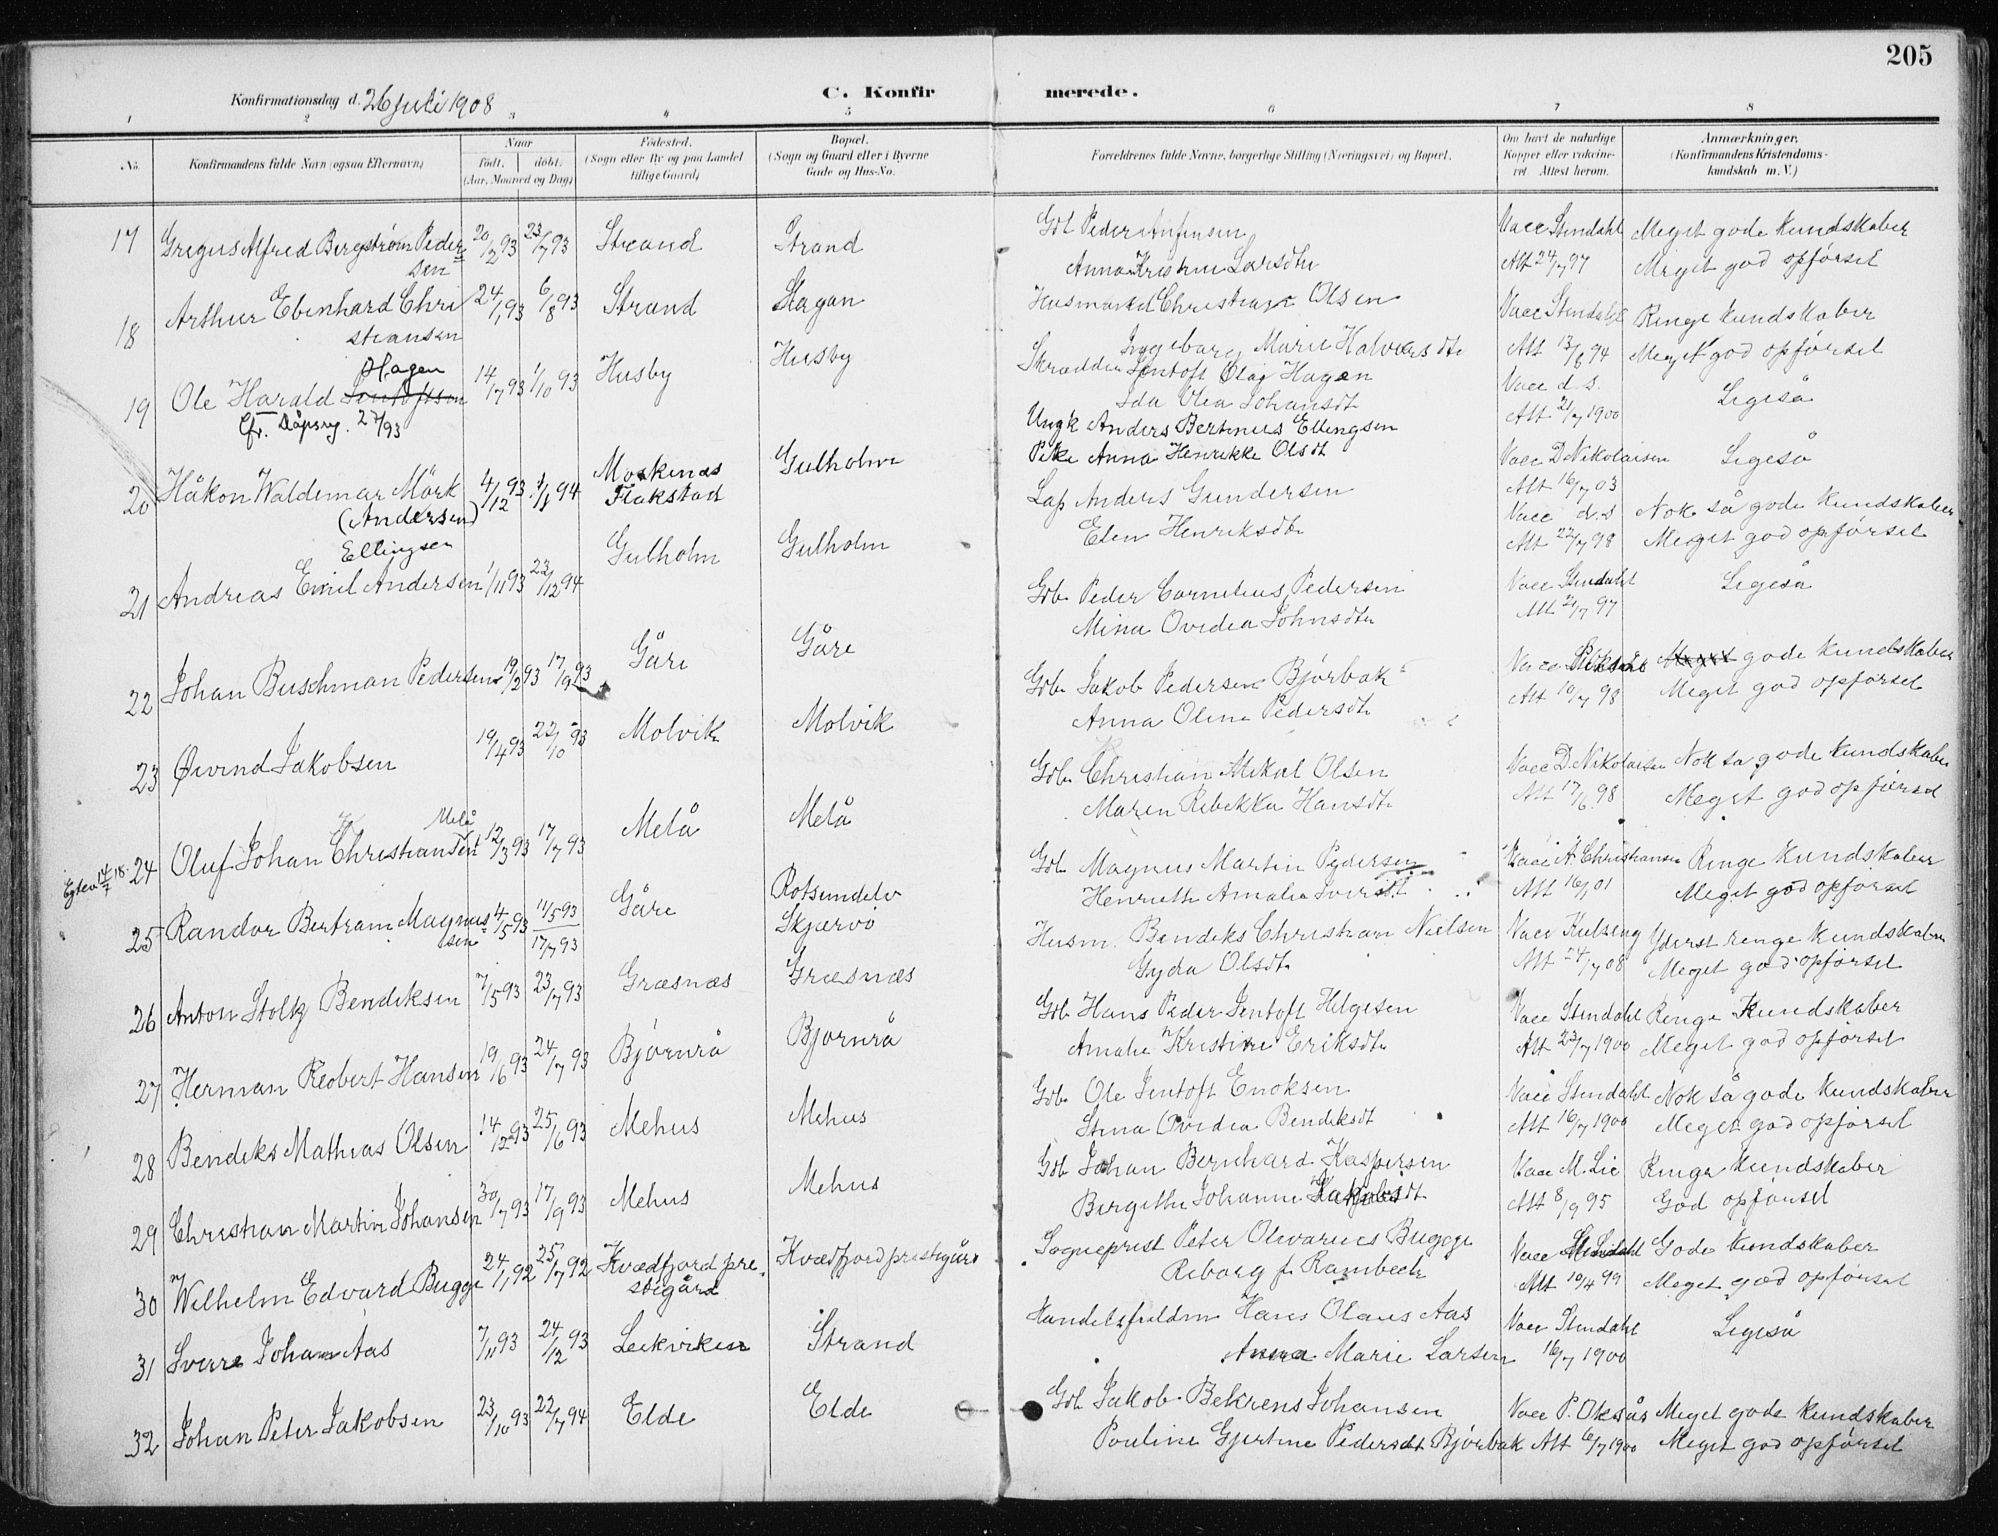 205
Konfirmationsdag d. 26 juli 1908
C. Konfirmerede.
1 2 3 4 5 6 7 8
No. Konfirmandens fulde Navn (ogsaa Efternavn) Naar født. døbt. (Aar, Maaned og Dag) Fødested. (Sogn eller By og paa Landet tillige Gaard) Bopæl. (Sogn og Gaard eller i Byerne Gade og Hus-No. Forældrenes fulde Navne, borgerlige Stilling (Næringsvei) og Bopæl. Om havt de naturlige Kopper eller vaccineret Attest herom. Anmærkninger. (Konfirmandens Kristendomskundskab m. V.)
17 Gregus Alfred Bergstrøm Pedersen 20/2 93 23/7 93 Strand Strand Gbr Peder Anfinsen Vacc Stendahl Meget gode kundskaber
Anna Kristine Larsdtr Att 24/7 97 Meget god opførsel
18 Arthur Ebenhard Christiansen 24/1 93 6/8 93 Strand Hagan Husmand Christian Olsen Vacc Stendahl Ringe kundskaber
Ingeborg Marie Halvorsdtr Att 13/6 94 Meget god opførsel
19 Ole Harald Jentoftsen Hagen 14/7 93 1/10 93 Husby Husby Skrædder Jentoft Olaj Hagen Vacc d. s. Ligeså
Cfr. Dåpsreg. 27/93 Ida Olea Johansdt Att 21/7 1900
20 Håkon Waldemar Mörk 4/12 93 1/1 94 Moskenæs Flakstad Gulholm Ungk Anders Bertinus Ellingsen Vacc D. Nikolaisen Ligeså
(Andersen) Pike Anna Henrikke Olsdt Att 16/7 03
Ellingsen
21 Andreas Emil Andersen 1/11 93 23/12 94 Gulholm Gulholm Lap Anders Gundersen Vacc d. s Nok så gode kundskaber
Elen Henriksdtr Att 22/7 98 Meget god opførsel
22 Johan Buschman Pedersen 19/2 93 17/9 93 Gåre Gåre Gbr Peder Cornelius Pedersen Vacc Stendahl Ligeså
Mina Ovedia Johnsdtr Att 21/7 97
23 Øivind Jakobsen 19/4 93 22/10 93 Molvik Molvik Gbr Jakob Pedersen Bjørbak Vacc Meget gode kundskaber
Anna Oline Pedersdt Att 10/7 98 Meget god opførsel
24 Oluf Johan Christiansen Melå 12/3 93 17/7 93 Melå Melå Gbr Christian Mikal Olsen Vacc D. Nikolaisen Nok så gode kundskaber
Maren Rebekka Hansdtr Att 17/6 98 Meget god opførsel
14/7 18.
25 Randor Bertram Magnussen 4/5 93 11/5 93 17/7 93 Gåre Rotsundelv Skjærvö Gbr Magnus Martin Pedersen Vacc A. Christiansen Ringe kundskaber
Henriette Amalie Att 16/7 01 Meget god opførsel
26 Anton Stoltz Bendiksen 7/5 93 23/7 93 Græsnæs Græsnæs Husm. Bendiks Christian Nielsen Vacc Kulseng Yderst ringe kundskaber
Gyda Olsdt. Att 24/7 08 Meget god opførsel
27 Herman Robert Hansen 19/6 93 24/7 93 Bjørnrå Bjørnrå Gbr Hans Peder Jentoft Helgesen Vacc Stendahl Ringe kundskaber
Amalie Kristine Eriksdtr Att 23/7 1900 Meget god opførsel
28 Bendiks Mathias Olsen 14/2 93 25/6 93 Mehus Mehus Gbr Ole Jentoft Enoksen Vacc Stendahl Nok så gode kundskaber
Stina Ovidia Bendiksdt Att 16/7 1900 Meget god opførsel
29 Christian Martin Johansen 30/7 93 17/9 93 Mehus Mehus Gbr Johan Bernhard Kaspersen Vacc M. Lie Ringe kundskaber
Bergitte Johanne Jakobsdt Att 8/9 95 God opførsel
30 Wilhelm Edvard Bugge 24/1 92 25/7 92 Kvædfjord prestegård Kvædfjord prestegård Sogneprest Peter Olivarius Bugge Vacc Stendahl Gode kundskaber
Reborg f. Rambech Att 10/4 99 Meget god opførsel
31 Sverre Johan Aas 7/11 93 24/12 93 Leikviken Strand Handelsfuldm Hans Olaus Aas Vacc Stendahl Ligeså
Anna Marie Larsen 16/7 1900
32 Johan Peter Jakobsen 23/10 93 22/7 94 Elde Elde Gbr Jakob Behrens Johansen Vacc P. Oksås Meget gode kundskaber
Pouline Gjertine Pedersdt Bjørbak Att 6/7 1900 Meget god opførsel